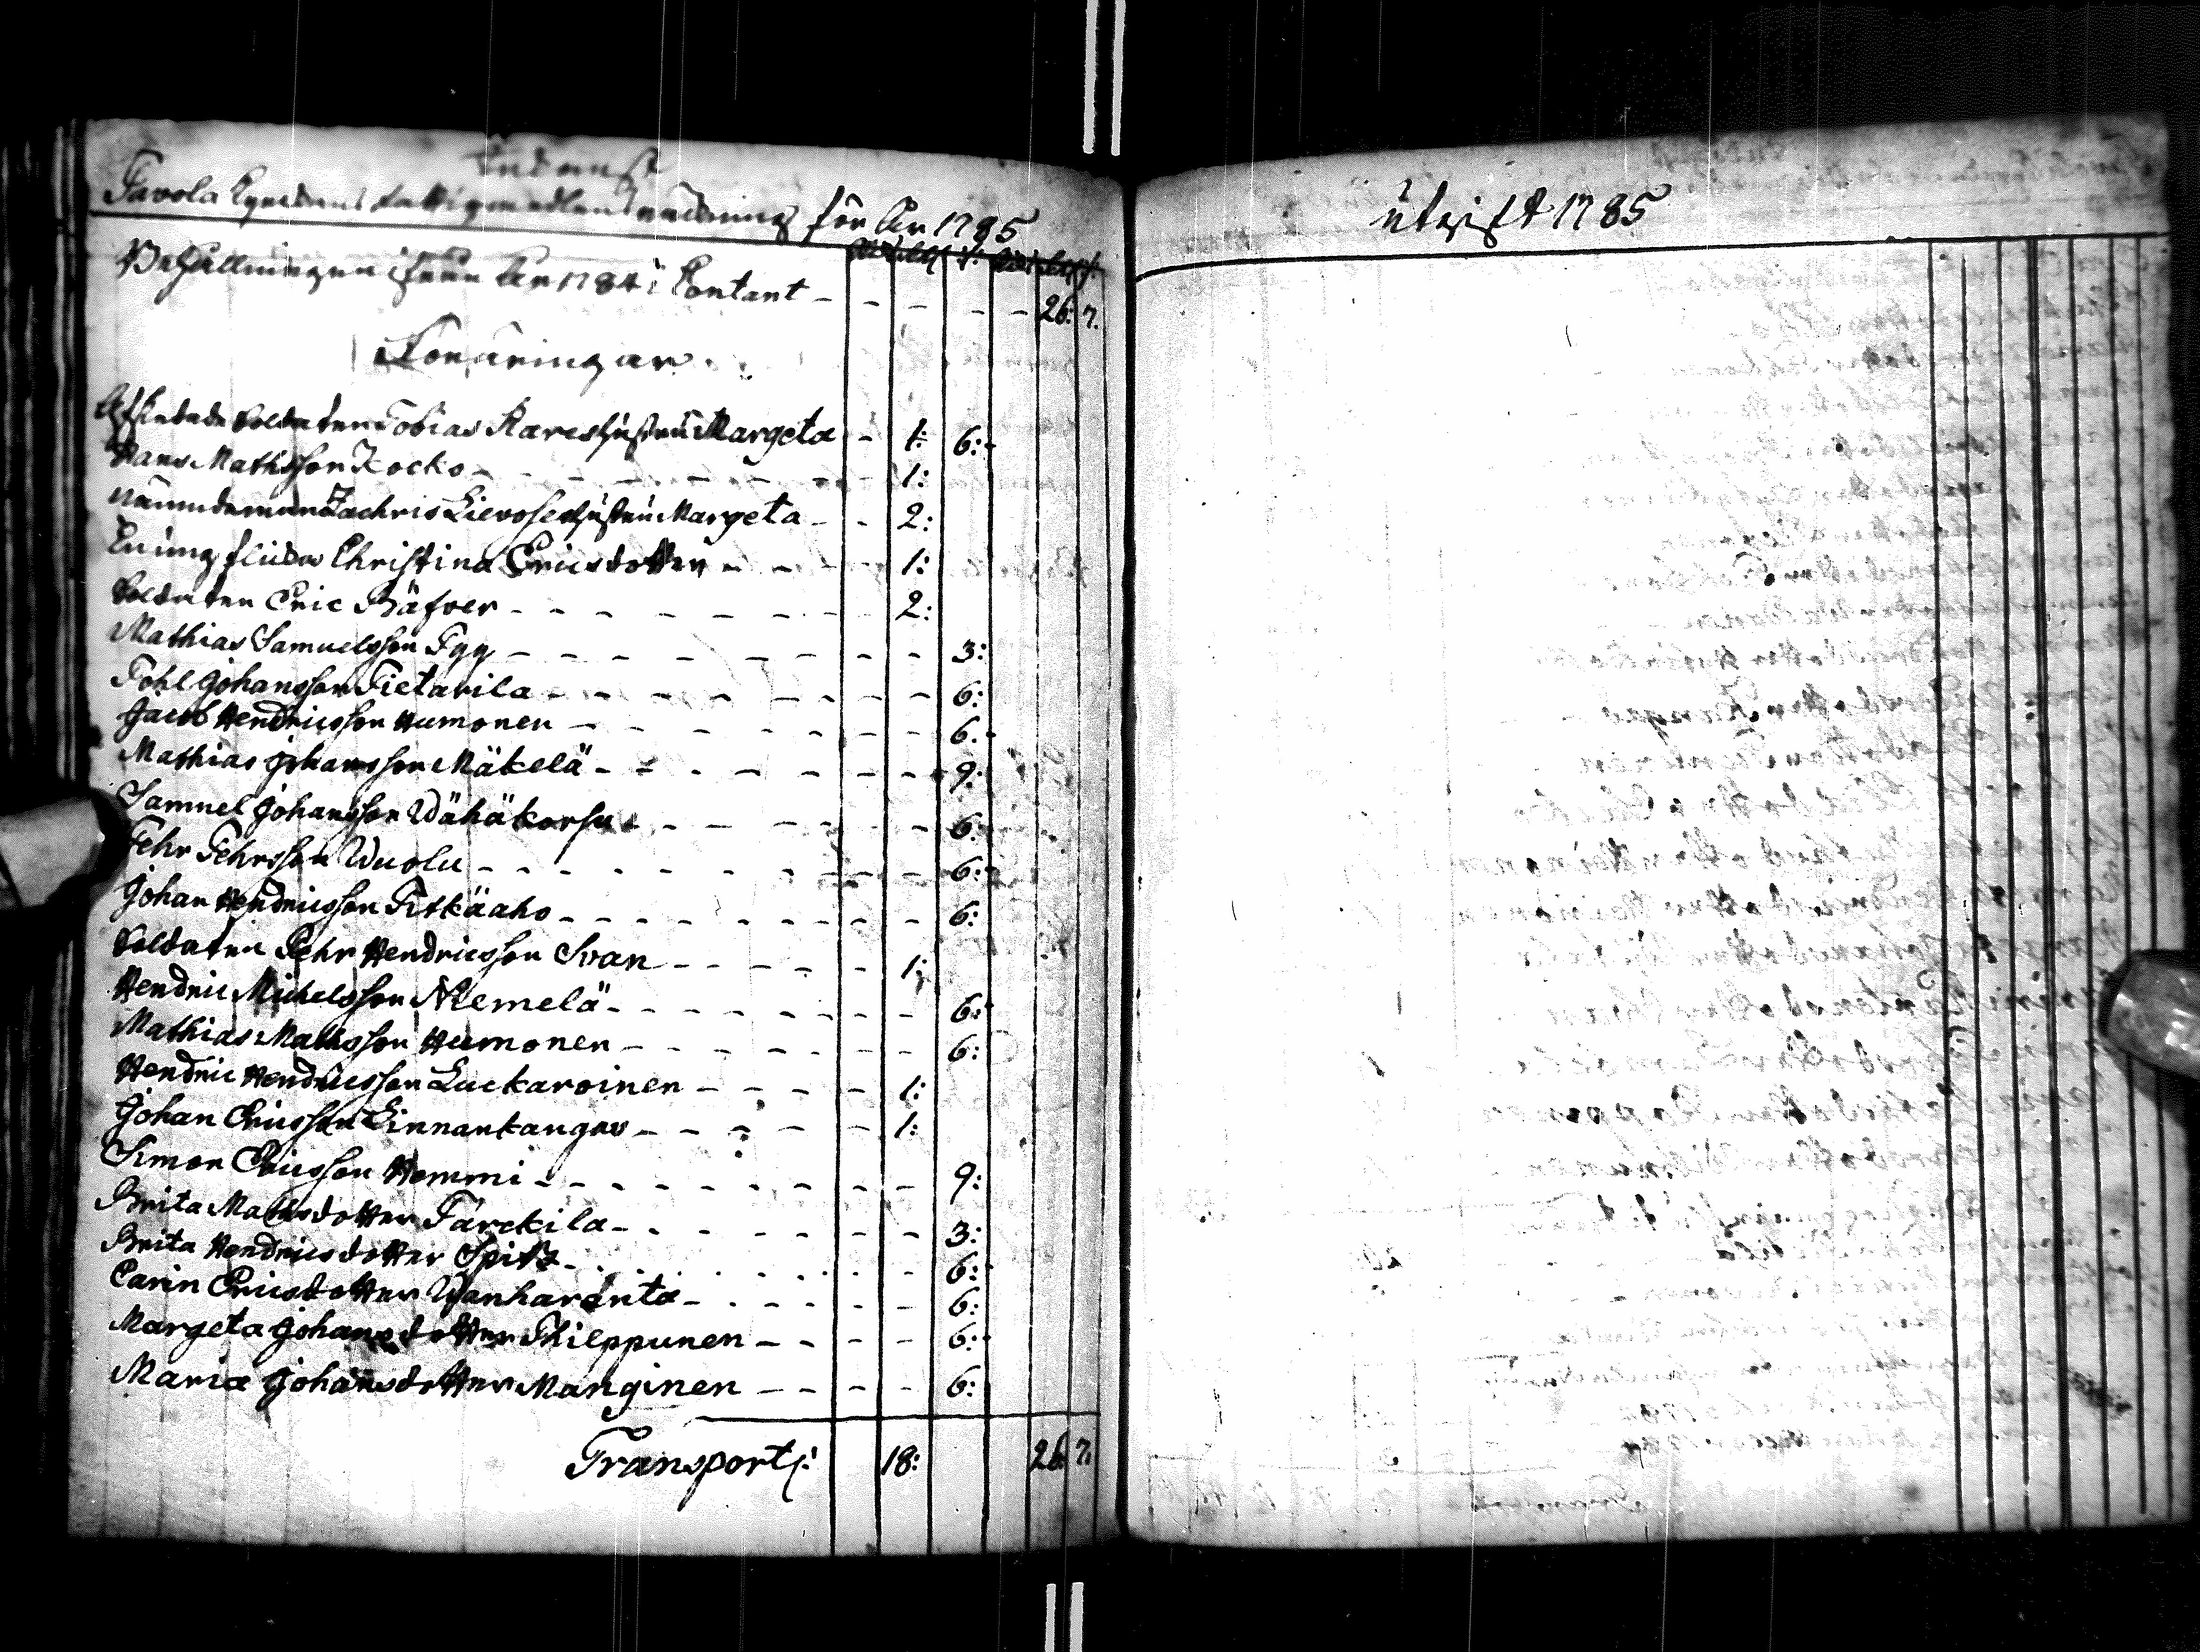 Pavola Kyrckans fattigmedlens räckning för År 1785
Behållningen ifrån År 1784 i Contant - - - - 26: 7.
Föräringar.
Afskedade Soldaten Tobias Kares hustru Margeta - 1: 6:
Hans Mathsson Kocko - - 1:
Nämndeman Zachris Lievoses hustru Margeta - - 2:
En ung flicka Christina Ericsdotter - - 1:
Soldaten Eric Bäfver - - 2:
Mathias Samuelsson Pyy - - 3:
Pohl Johansson Pietarila - - 6:
Jacob Hendricsson Humonen - - 6.
Mathias Johansson Mäkelä - - 9:
Samuel Johansson Wähäkorsu - - 6:
Pehr Pehrsson Wuolu - - 6:
Johan Hendricsson Pitkäaho - - 6:
Soldaten Pehr Hendricsson Svan - - 1:
Hendric Michelsson Niemelä - - 6:
Mathias Mathsson Humonen - - 6:
Hendric Hendricsson Luckaroinen - - 1:
Johan Ericsson Linnankangas - - 1:
Simon Ericsson Hommi - - 9:
Brita Mathsdotter Tärckila - - 3:
Brita Hendricsdotter Spitz - - 6:
Carin Ericsdotter Wanharanta - - 6:
Margeta Johansdotter Philppunen - - 6:
Maria Johansdotter Manginen - - 6:
Transport 18: 26: 7:
Utgift 1785